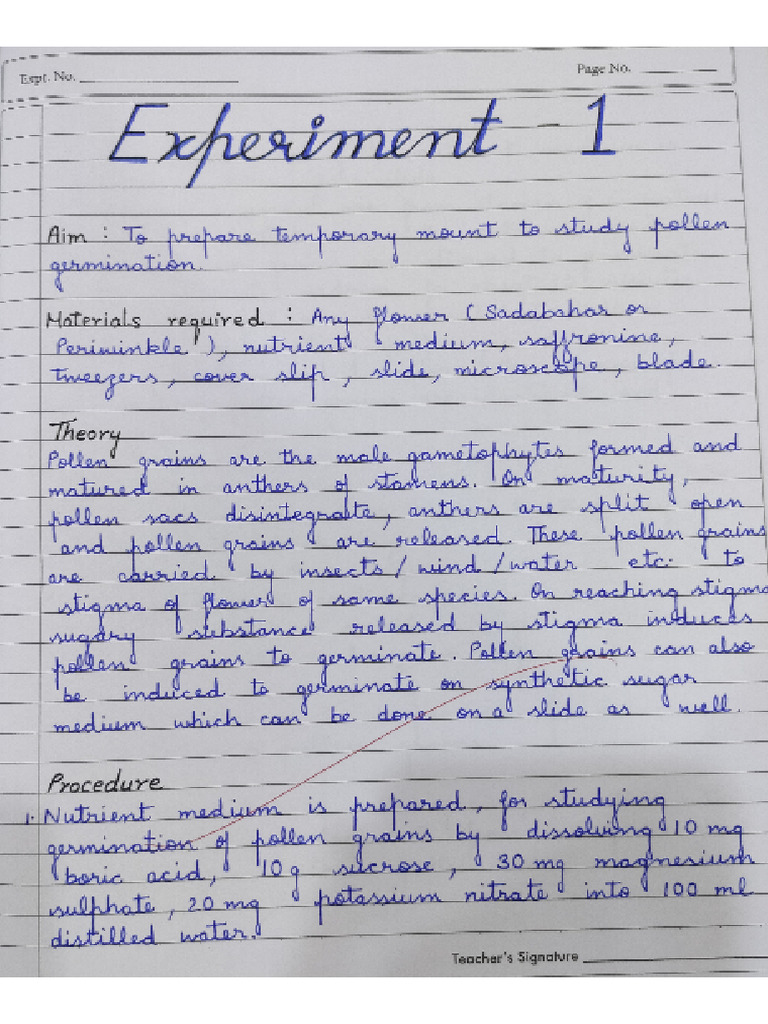 Expt. No.
Page No.
Experiment - 1
Aim : To prepare temporary mount to study pollen
germination.
Materials required : Any flower (Sadabahar or
Periwinkle), nutrient medium, saffronine,
tweezers, cover slip, slide, microscope, blade.
Theory
Pollen grains are the male gametophytes formed and
matured in anthers of stamens. On maturity,
pollen sacs disintegrate, anthers are split open
and pollen grains are released. These pollen grains
are carried by insects/wind/water etc. to
stigma of flower of same species. On reaching stigma
sugary substance released by stigma induces
pollen grains to germinate. Pollen grains can also
be induced to germinate on synthetic sugar
medium which can be done on a slide as well.
Procedure
1. Nutrient medium is prepared, for studying
germination of pollen grains by dissolving 10 mg
boric acid, 10 g sucrose, 30 mg magnesium
sulphate, 20 mg potassium nitrate into 100 ml
distilled water.
Teacher's Signature